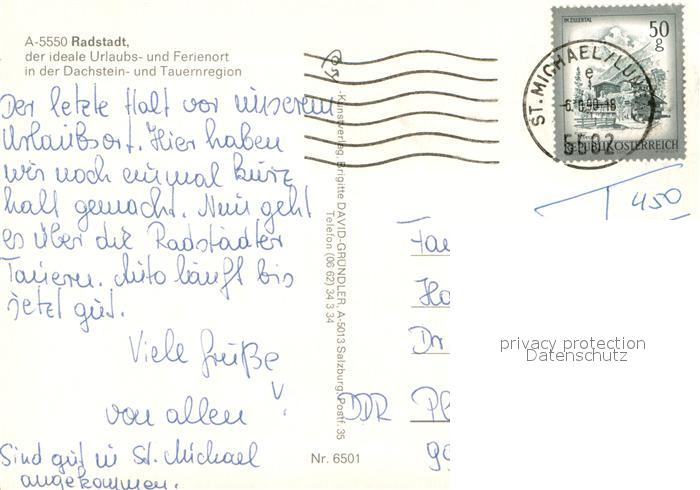 A-5550 Radstadt,
der ideale Urlaubs- und Ferienort
in der Dachstein- und Tauernregion
Der letzte Halt vor unserem
Urlaubsort. Hier haben
wir noch einmal kurz
halt gemacht. Nun geht
es über die Radstädter
Tauern. Auto läuft bis
jetzt gut.
Viele Grüße
von allen !
Sind gut in St. Michael
angekommen.
Kunstverlag Brigitte DAVID-GRÜNDLER, A-5013 Salzburg, Postf. 35
Telefon (06 62) 34 3 34
Nr. 6501
IM ZILLERTAL
50
g
REPUBLIK ÖSTERREICH
ST. MICHAEL/LUNGAU
5582
T 450
Fam
Ho
Dr
DDR Pl
privacy protection
Datenschutz